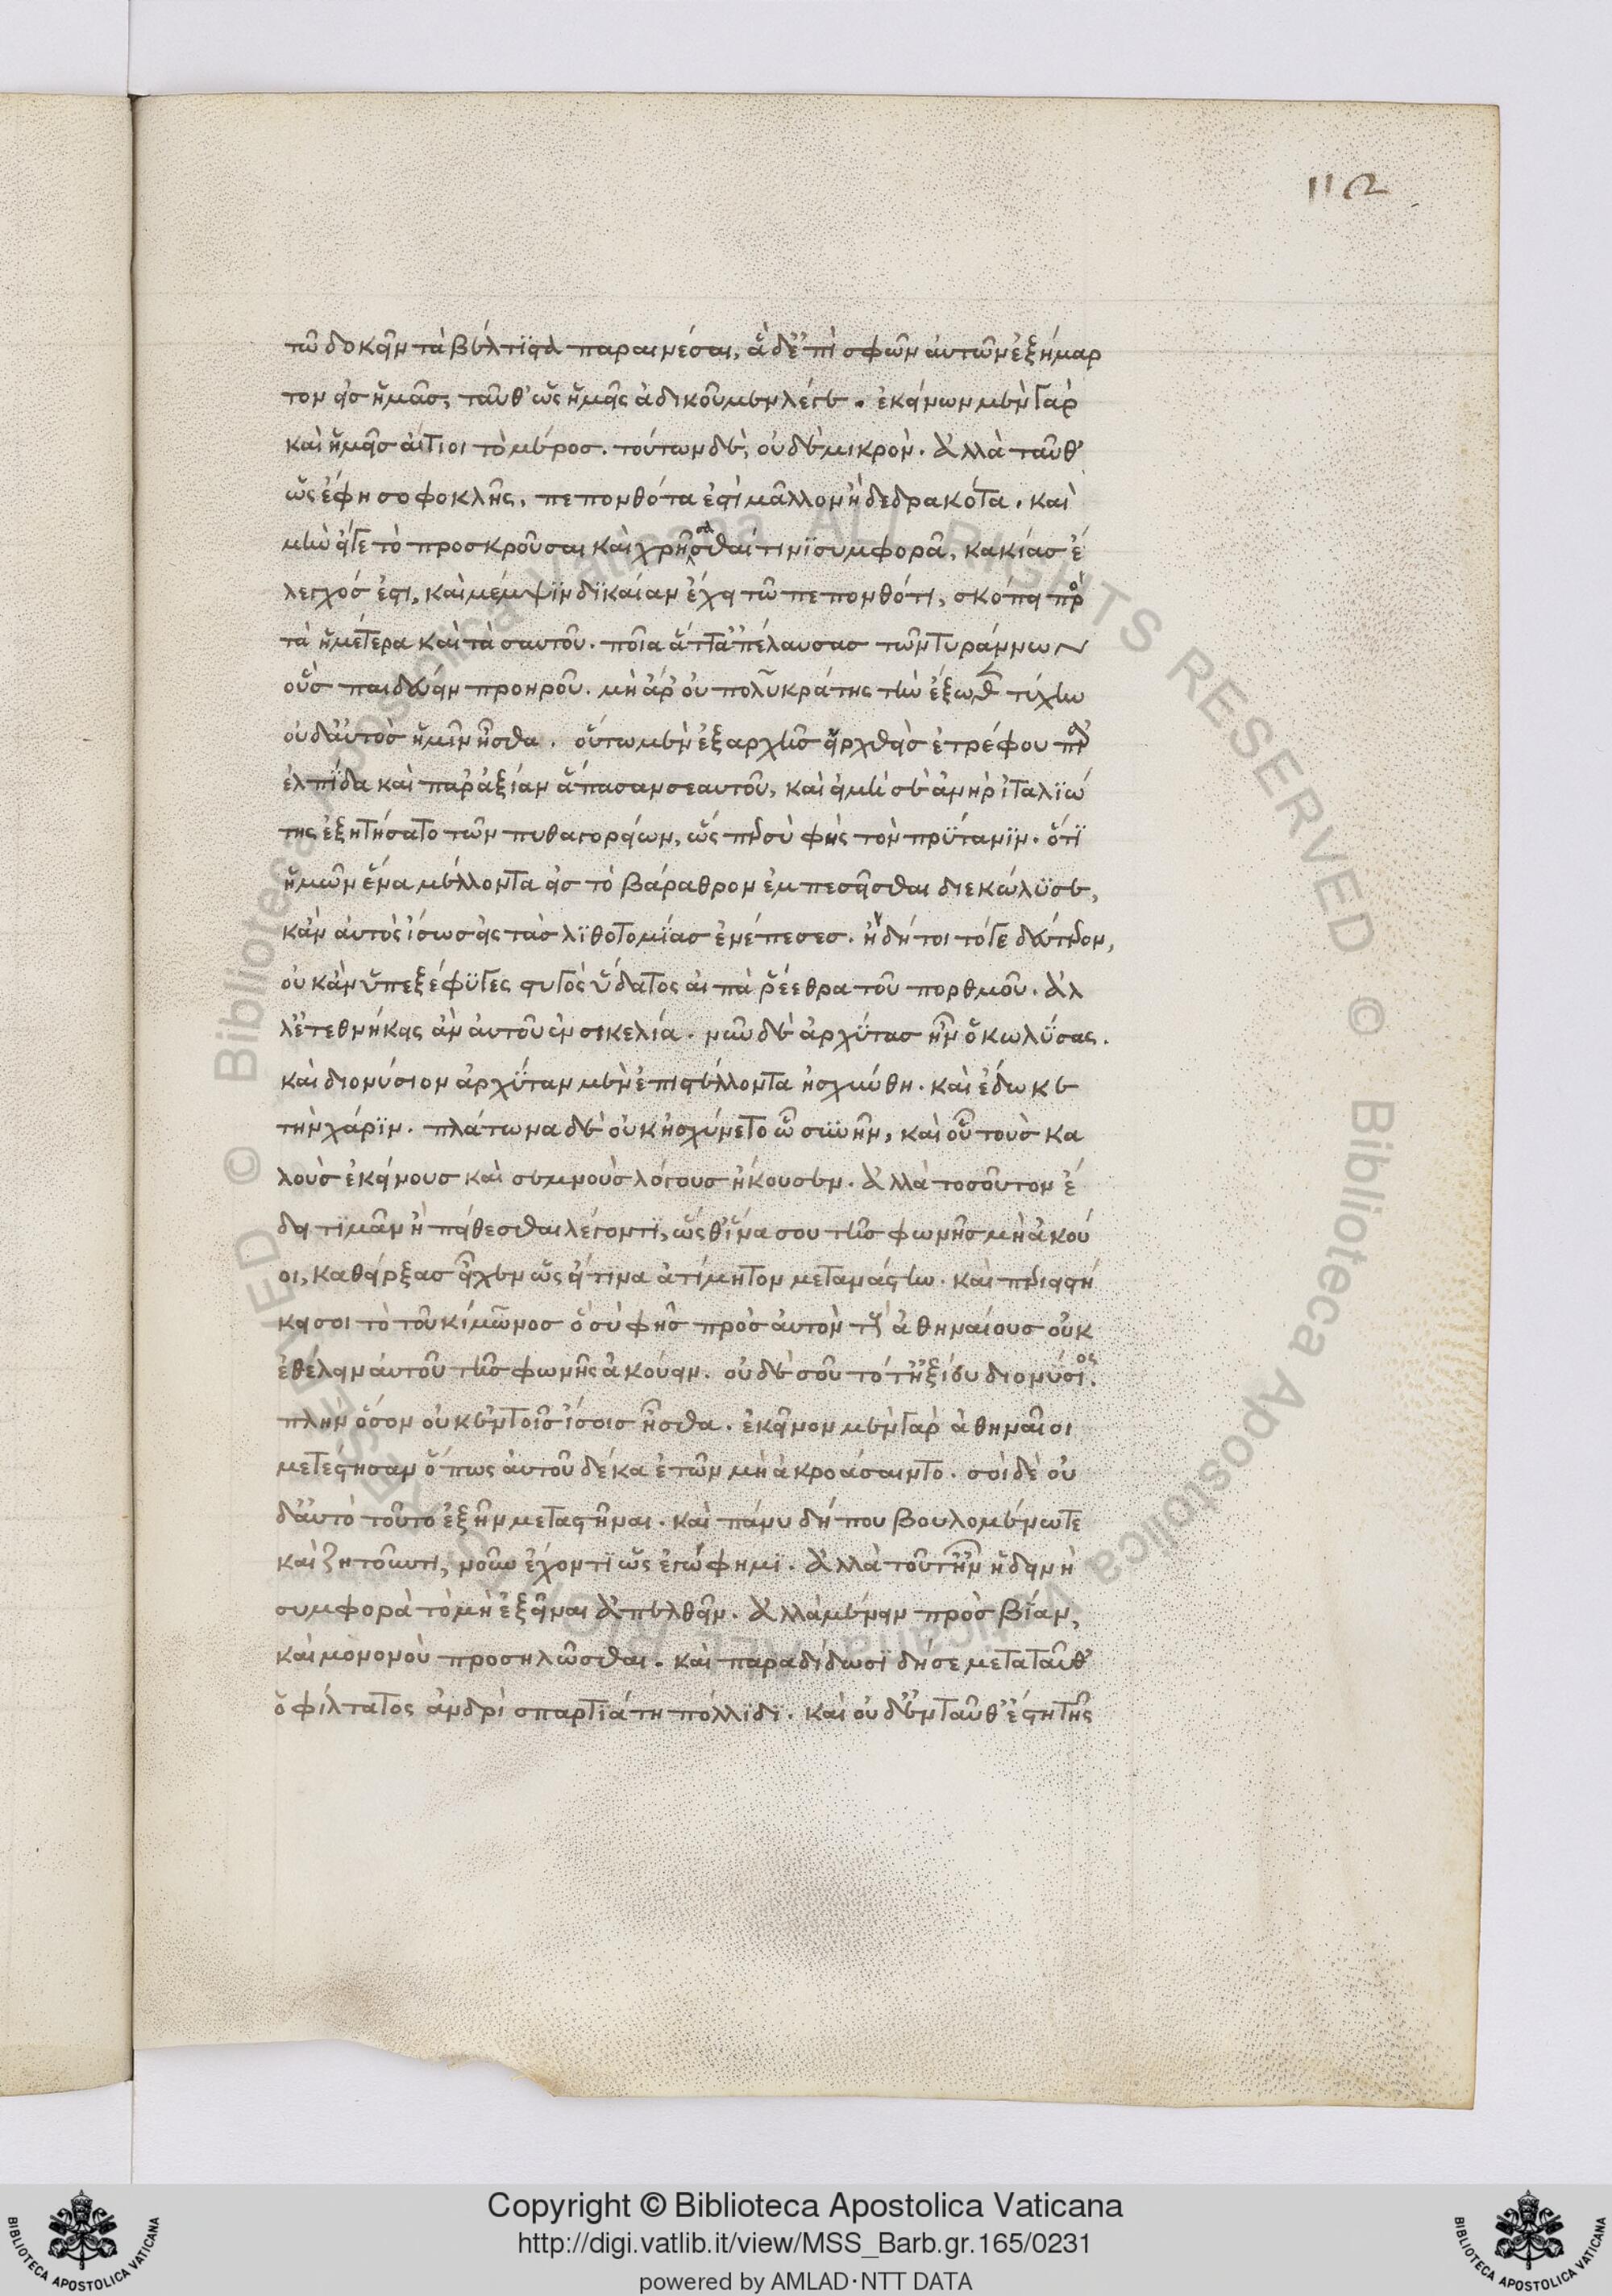 112
τῶ δοκεῖν τὰ βέλτιστα παραινέσαι, ἃ δ' ἐπὶ σφῶν αὐτῶν ἐξήμαρ
τον εἰς ἡμᾶς, ταῦθ' ὡς ἡμεῖς ἀδικοῦμεν λέγε. ἐκείνων μὲν γὰρ
καὶ ἡμεῖς αἴτιοι τὸ μέρος. τούτων δὲ, οὐδὲ μικρόν. ἀλλὰ ταῦθ'
ὡς ἔφη σοφοκλῆς, πεπονθότα ἐστὶ μᾶλλον ἢ δεδρακότα. καὶ
μὴν εἴγε τὸ προσκροῦσαι καὶ χρήσασθαί τινι συμφορᾶ, κακίας ἔ
λεγχός ἐστι, καὶ μέμψιν δικαίαν ἔχει τῶ πεπονθότι, σκόπει πρὸ
τὰ ἡμέτερα καὶ τὰ σαυτοῦ. ποῖα ἄττ' ἀπέλαυσας τῶν τυράννων
οὓς παιδεύειν προηροῦ. μὴ ἄρ' οὐ πολυκράτης τὴν ἔξωθεν τύχην
οὐδ' αὐτὸς ἡμῖν ἦσθα. οὕτω μὲν ἐξ ἀρχῆς ἀρχθεὶς ἐτρέφου παρ'
ἐλπίδα καὶ παρ' ἀξίαν ἅπασαν σεαυτοῦ, καὶ εἰ μή σε ἀνὴρ ἰταλιώ
της ἐξητήσατο τῶν πυθαγορείων, ὥσπερ σὺ φὴς τὸν πρύτανιν. ὅτι
ἡμῶν ἕνα μέλλοντα εἰς τὸ βάραθρον ἐμπεσεῖσθαι διεκώλυσε,
κἂν αὐτὸς ἴσως εἰς τὰς λιθοτομίας ἐνέπεσες. ἢ δή τοι τόγε δεύτερον,
οὐκ ἂν ὑπεξέφυγες στυγὸς ὕδατος αἰπὰ ῥέεθρα τοῦ πορθμοῦ. ἀλ
λ' ἐτεθνήκεις ἂν αὐτοῦ ἐν σικελία. νῦν δὲ ἀρχύτας ἦν ὁ κωλύσας.
καὶ διονύσιον ἀρχύταν μὲν ἐπιστέλλοντα ἠσχύνθη. καὶ ἔδωκε
τὴν χάριν. πλάτωνα δὲ οὐκ ἠσχύνετο ὧ συνῆν, καὶ οὗ τοὺς κα
λοὺς ἐκείνους καὶ σεμνοὺς λόγους ἤκουσεν. ἀλλὰ τοσοῦτον ἔ
δει τιμᾶν ἢ πείθεσθαι λέγοντι, ὥσθ' ἵνα σου τῆς φωνῆς μὴ ἀκού
οι, καθείρξας εἶχεν ὥς εἴ τινα ἀτίμητον μετανάστην. καὶ περιεστή
κει σοι τὸ τοῦ κίμωνος ὃ σὺ φὴς πρὸς αὐτὸν τοὺς ἀθηναίους οὐκ
ἐθέλειν αὐτοῦ τῆς φωνῆς ἀκούειν. οὐδὲ σοῦ τότ' ἠξίου διονύσιος.
πλὴν ὅσον οὐκ ἐν τοῖς ἴσοις ἦσθα. ἐκεῖνον μὲν γὰρ ἀθηναῖοι
μετέστησαν ὅπως αὐτοῦ δέκα ἐτῶν μὴ ἀκροάσαιντο. σοὶ δὲ οὐ
δ' αὐτὸ τοῦτο ἐξῆν μεταστῆναι. καὶ πάνυ δή που βουλομένω τε
καὶ ζητοῦντι, νοῦν ἔχοντι ὡς ἐγώ φημι. ἀλλὰ τοῦτ' ἦν ἤδειν ἡ
συμφορὰ τὸ μὴ ἐξεῖναι ἀπελθεῖν. ἀλλὰ μένειν πρὸς βίαν,
καὶ μόνον οὐ προσηλῶσθαι. καὶ παραδίδωσι δή σε μετὰ ταῦθ'
ὁ φίλτατος ἀνδρὶ σπαρτιάτη πόλλιδι. καὶ οὐδ' ἐνταῦθ' ἔστη τῆς
Copyright © Biblioteca Apostolica Vaticana
http://digi.vatlib.it/view/MSS_Barb.gr.165/0231
powered by AMLAD·NTT DATA